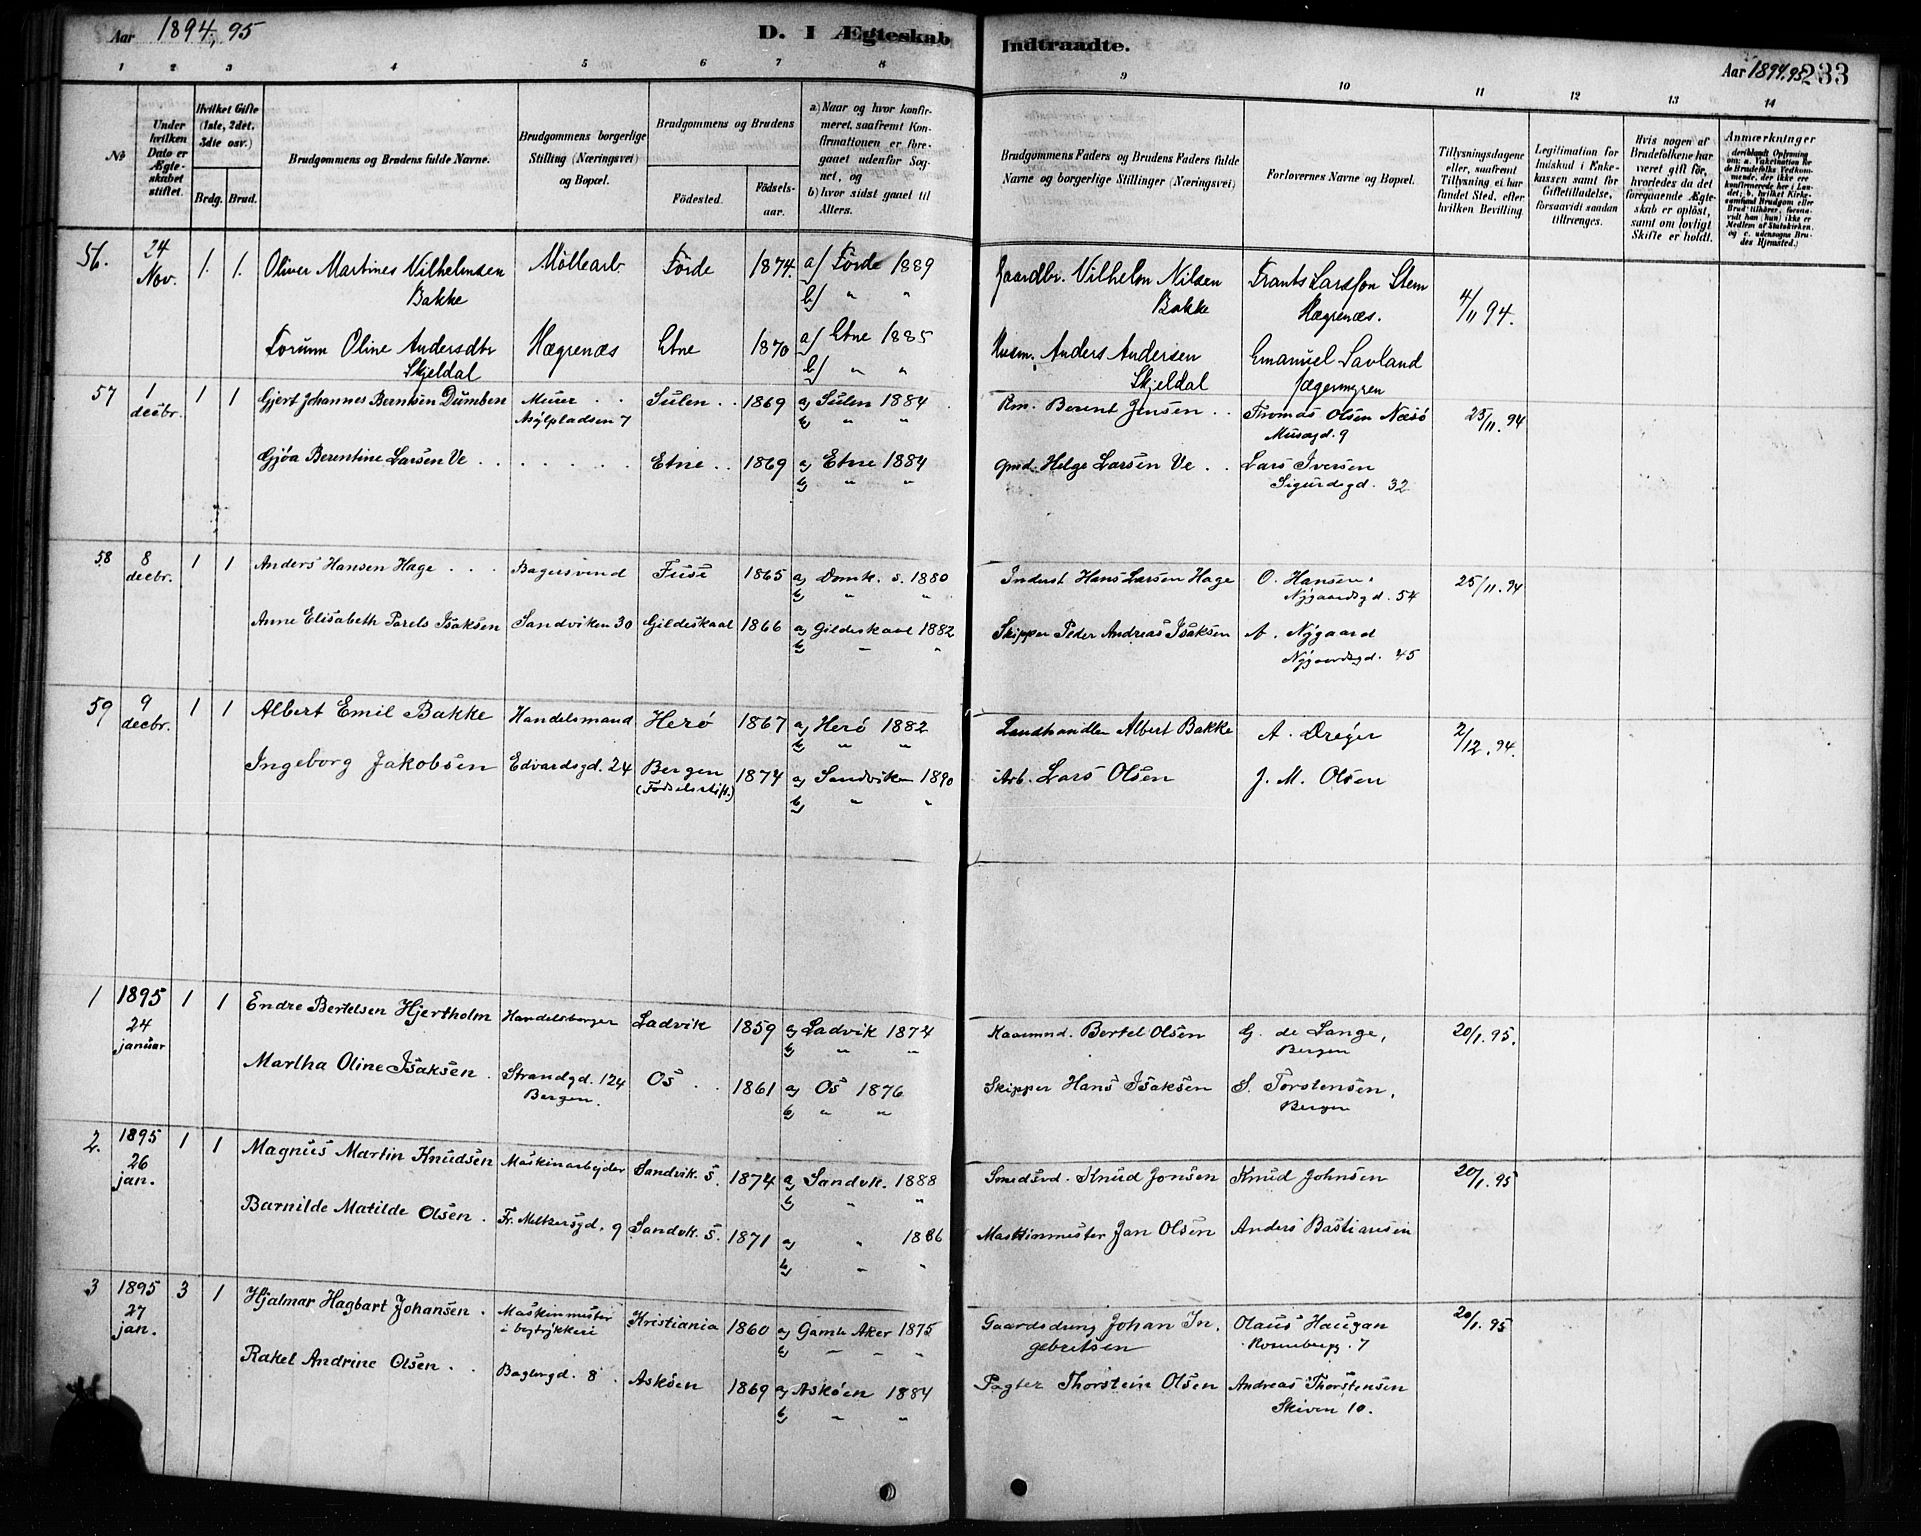 Aar 1894, 95
D. I Ægteskab Indtraadte.
Aar 1894.95 233
1 2 3 4 5 6 7 8 9 10 11 12 13 14
No
Under hvilken Dato er Ægteskabet stiftet.
Hvilket Gifte (1ste, 2det, 3dte osv.)
Brdg. Brud.
Brudgommens og Brudens fulde Navne.
Brudgommens borgerlige Stilling (Næringsvei) og Bopæl.
Brudgommens og Brudens
Fødested. Fødselsaar.
a) Naar og hvor konfirmeret, saafremt Konfirmationen er foregaaet udenfor Sognet, og
b) hvor sidst gaaet til Alters.
Brudgommens Faders og Brudens Faders fulde Navne og borgerlige Stillinger (Næringsvei)
Forlovernes Navne og Bopæl.
Tillysningsdagene eller, saafremt Tillysning ei har fundet Sted, efter hvilken Bevilling.
Legitimation for Indskud i Enkekassen samt for Giftetilladelse, forsaavidt saadan tiltrænges.
Hvis nogen af Brudefolkene har været gift før, hvorledes da det foregaaende Ægteskab er opløst, samt om lovligt Skifte er holdt.
Anmærkninger
56. 24 Nov. 1. 1. Oliver Martines Vilhelmsen Bakke Møllearb Førde 1874. a) Førde 1889 Gaardbr. Vilhelm Nilsen Bakke Frants Larsson Stem Hægrenæs. 4/11 94.
b) " "
Torunn Oline Andersdtr Skjeldal Hægrenæs Etne 1870 a) Etne 1885 Husm. Anders Andersen Skjeldal Emanuel Lavland Jægermyren
b) " "
57 1 decbr. 1 1 Gjert Johannes Berntsen Dumben Murer Asylpladsen 7 Sulen 1869 a) Sulen 1884 Rm. Berent Jensen Thomas Olsen Næsø Musegd. 9 25/11. 94
b) " "
Gjøa Berentine Larsen Ve Etne 1869 a) Etne 1884 Gmd. Helge Larsen Ve Lars Iversen Sigurdsgd. 32
b) " "
58 8 decbr. 1 1 Anders Hansen Hage Bagersvend Fuse 1865 a) Domk. s. 1880 Inderst Hans Larsen Hage O. Hansen, Nygaardsgd. 54 25/11. 94
b) " "
Anne Elisabeth Parels Isaksen Sandviken 30 Gildeskaal 1866 a) Gildeskaal 1882 Skipper Peder Andreas Isaksen A. Nygaard Nygaardsgd. 45
b) " "
59 9 decbr. 1 1 Albert Emil Bakke Handelsmand Herø 1867 a) Herø 1882 Landhandler Albert Bakke A. Dreyer 2/12. 94.
b) " "
Ingeborg Jakobsen Edvardsgd. 24 Bergen (Fødselsstift.) 1874 a) Sandviken 1890 Arb. Lars Olsen J. M. Olsen
b) " "
1 1895 24 januar 1 1 Endre Bertelsen Hjertholm Handelsborger Ladvik 1859 a) Ladvik 1874 Kaarmnd. Bertel Olsen G. de Lange, Bergen 20/1. 95.
b) " "
Martha Oline Isaksen Strandgd. 124 Bergen. Os 1861 a) Os 1876 Skipper Hans Isaksen S. Torstensen, Bergen
b) " "
2. 1895 26 jan. 1 1 Magnus Martin Knudsen Maskinarbejder Sandvik. S. 1874 a) Sandvk. 1888 Smedsvd. Knud Jonsen Knud Johnsen 20/1. 95
b) " "
Barnilde Matilde Olsen Fr. Meltzersgd. 9 Sandvk. S. 1871 a) " 1886 Maskinmester Jan Olsen Anders Bastiansen
b) " "
3 1895 27 jan. 3 1 Hjalmar Hagbart Johansen Maskinmester i bogtrykkeri Kristiania 1860 a) Gamle Aker 1875 Gaardsdreng Johan Ingebretsen Olaus Haugan Rosenbergg. 7 20/1. 95
b) " "
Rakel Andrine Olsen Baglergd. 8 Askøen 1869 a) Askøen 1884 Pagter Thorstein Olsen Andreas Thorstensen Skiven 10.
b) " "